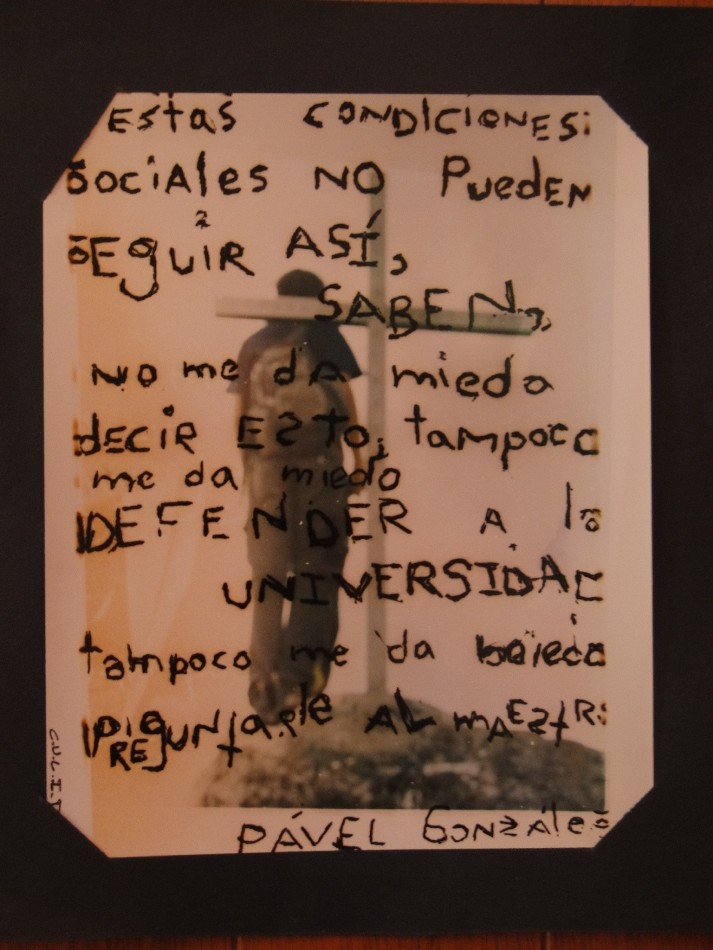 Estas CONDICIONES
SociAles NO PuedEN
SEguiR ASÍ,
SABEN,
No me dA miedo
dECIR ESTO, tampoco
me da miedo
DEFENDER A la
UNIVERSIDAD
tampoco me da miedo
PREguntarle AL mAEstR
PÁVEL GONzÁlez
C.U.L.I.